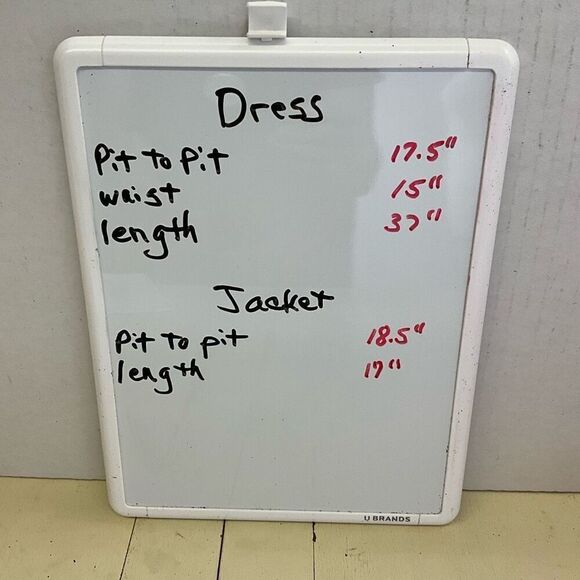 Dress
Pit to Pit 17.5"
waist 15"
length 37"
Jacket
Pit to pit 18.5"
length 17"
U BRANDS